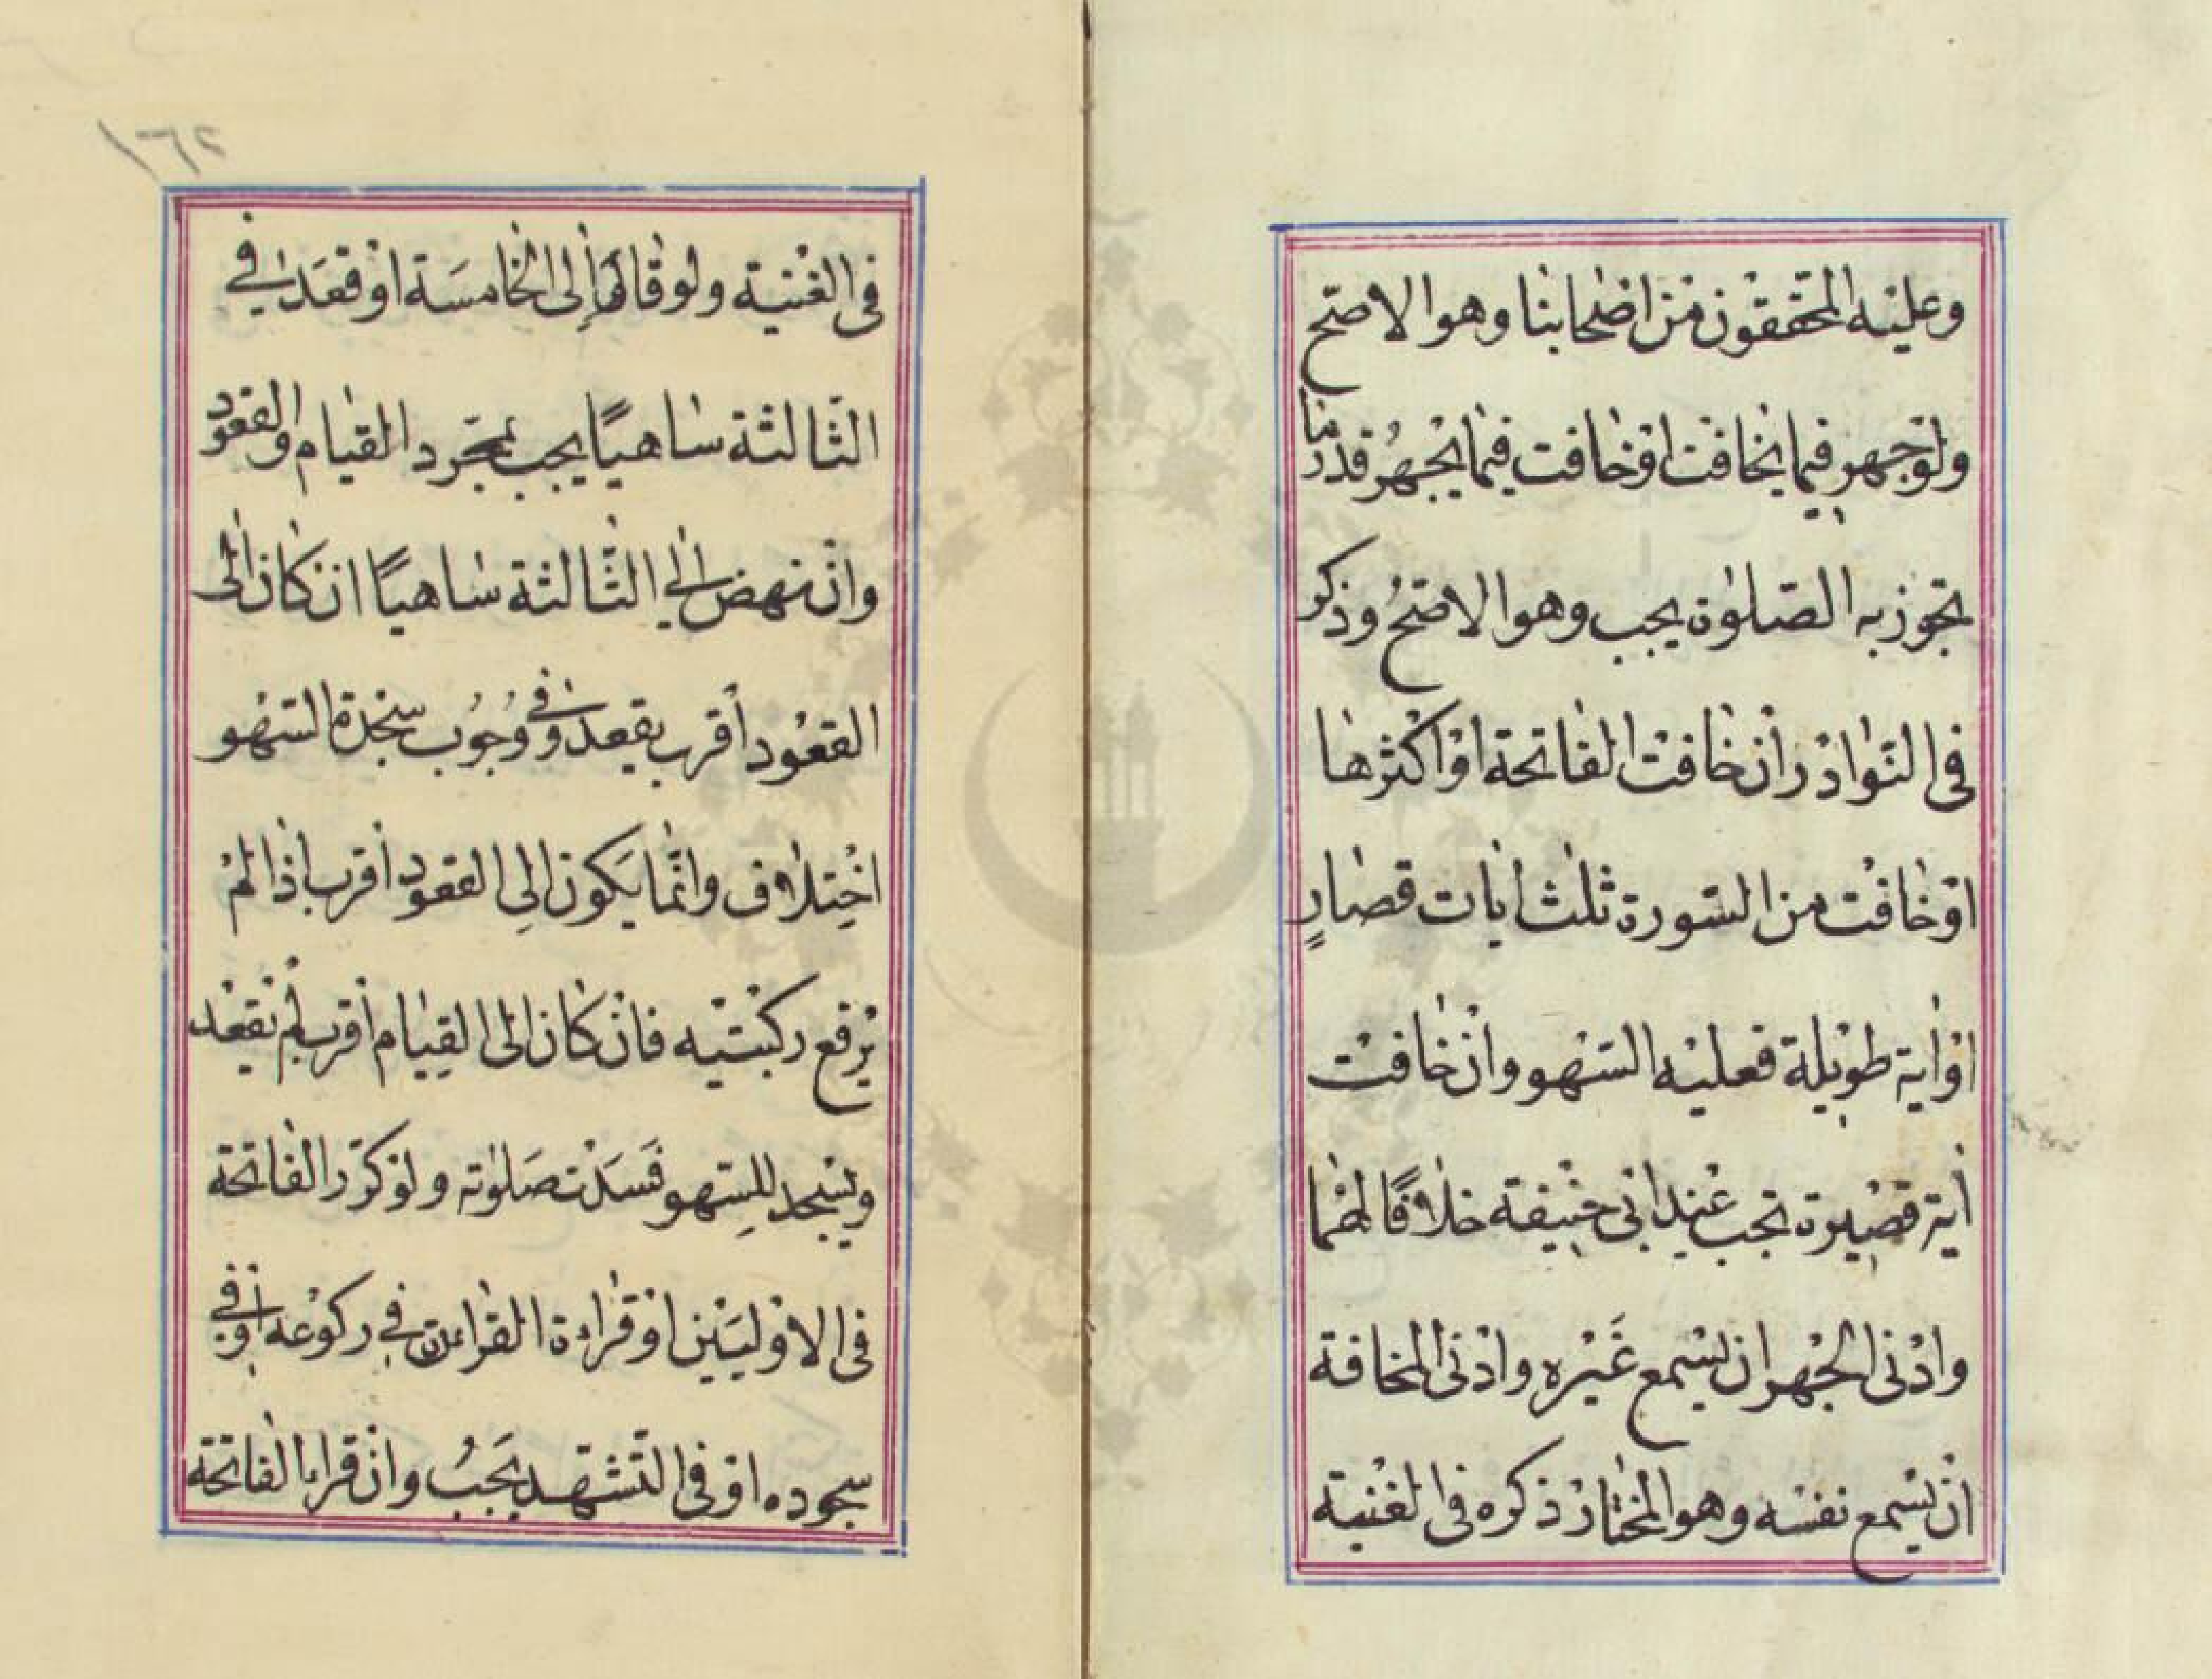 وعليه المحققون من اصحابنا وهو الاصح
ولو جهر فيما يخافت او خافت فيما يجهر قدر ما
تجوز به الصلوة يجب وهو الاصح وذكر
فى النوادر ان خافت الفاتحة او اكثرها
او خافت من السورة ثلث ايات قصار
او اية طويلة فعليه السهو وان خافت
أية قصيرة تجب عند ابى حنيفة خلافا لهما
وادنى الجهر ان يسمع غيره وادنى المخافة
ان يسمع نفسه وهو المختار ذكره فى الغنية
١٦٢
فى الغنية ولو قام إلى الخامسة او قعد في
الثالثة ساهيًا يجب بمجرد القيام والقعود
وان نهض الي الثالثة ساهيًا ان كان الى
القعود أقرب يقعد وفي وجوب سجدة السهو
اختلاف وانما يكون الى القعود أقرب اذا لم
يرفع ركبتيه فان كان الى القيام أقرب لم يقعد
ويسجد للسهو فسدت صلوته ولو كرر الفاتحة
فى الاوليين او قراءة القراءن في ركوعه أو في
سجوده او فى التشهد يجب وان قرا الفاتحة